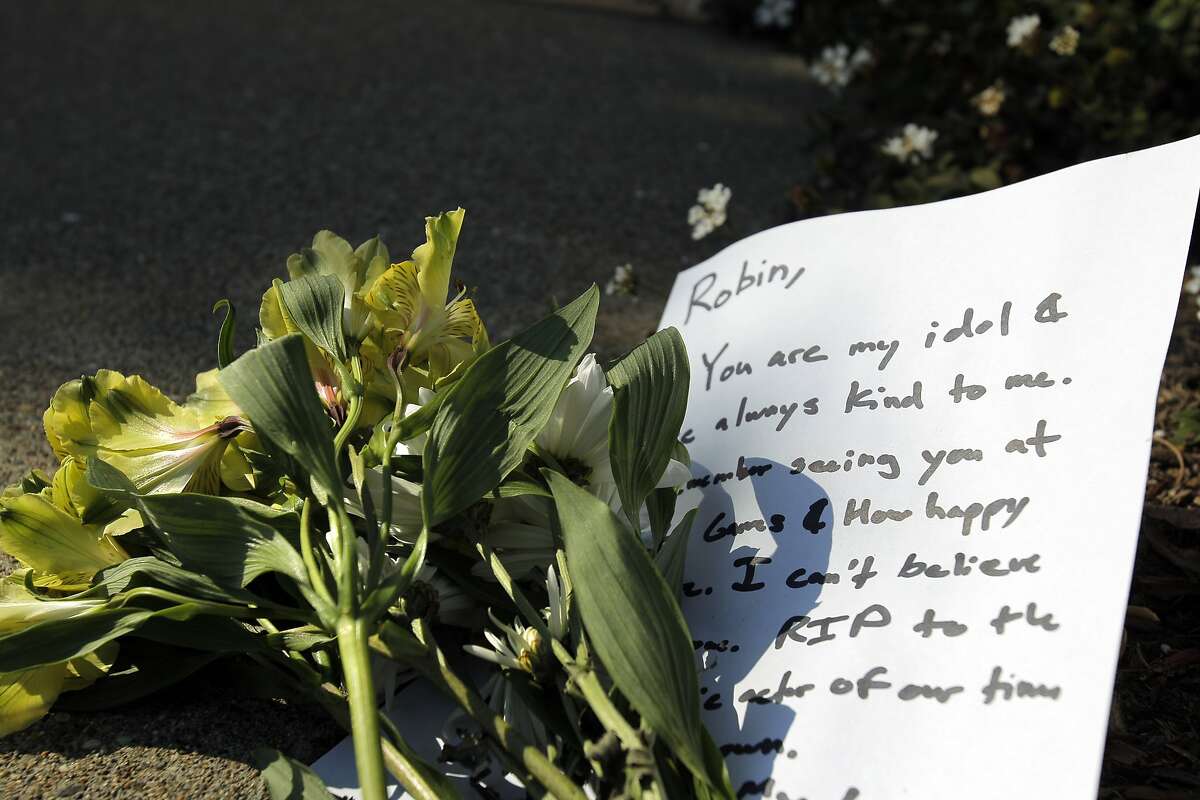 Robin,
You are my idol &
always kind to me.
seeing you at
Games & How happy
I can't believe
RIP to the
actor of our time